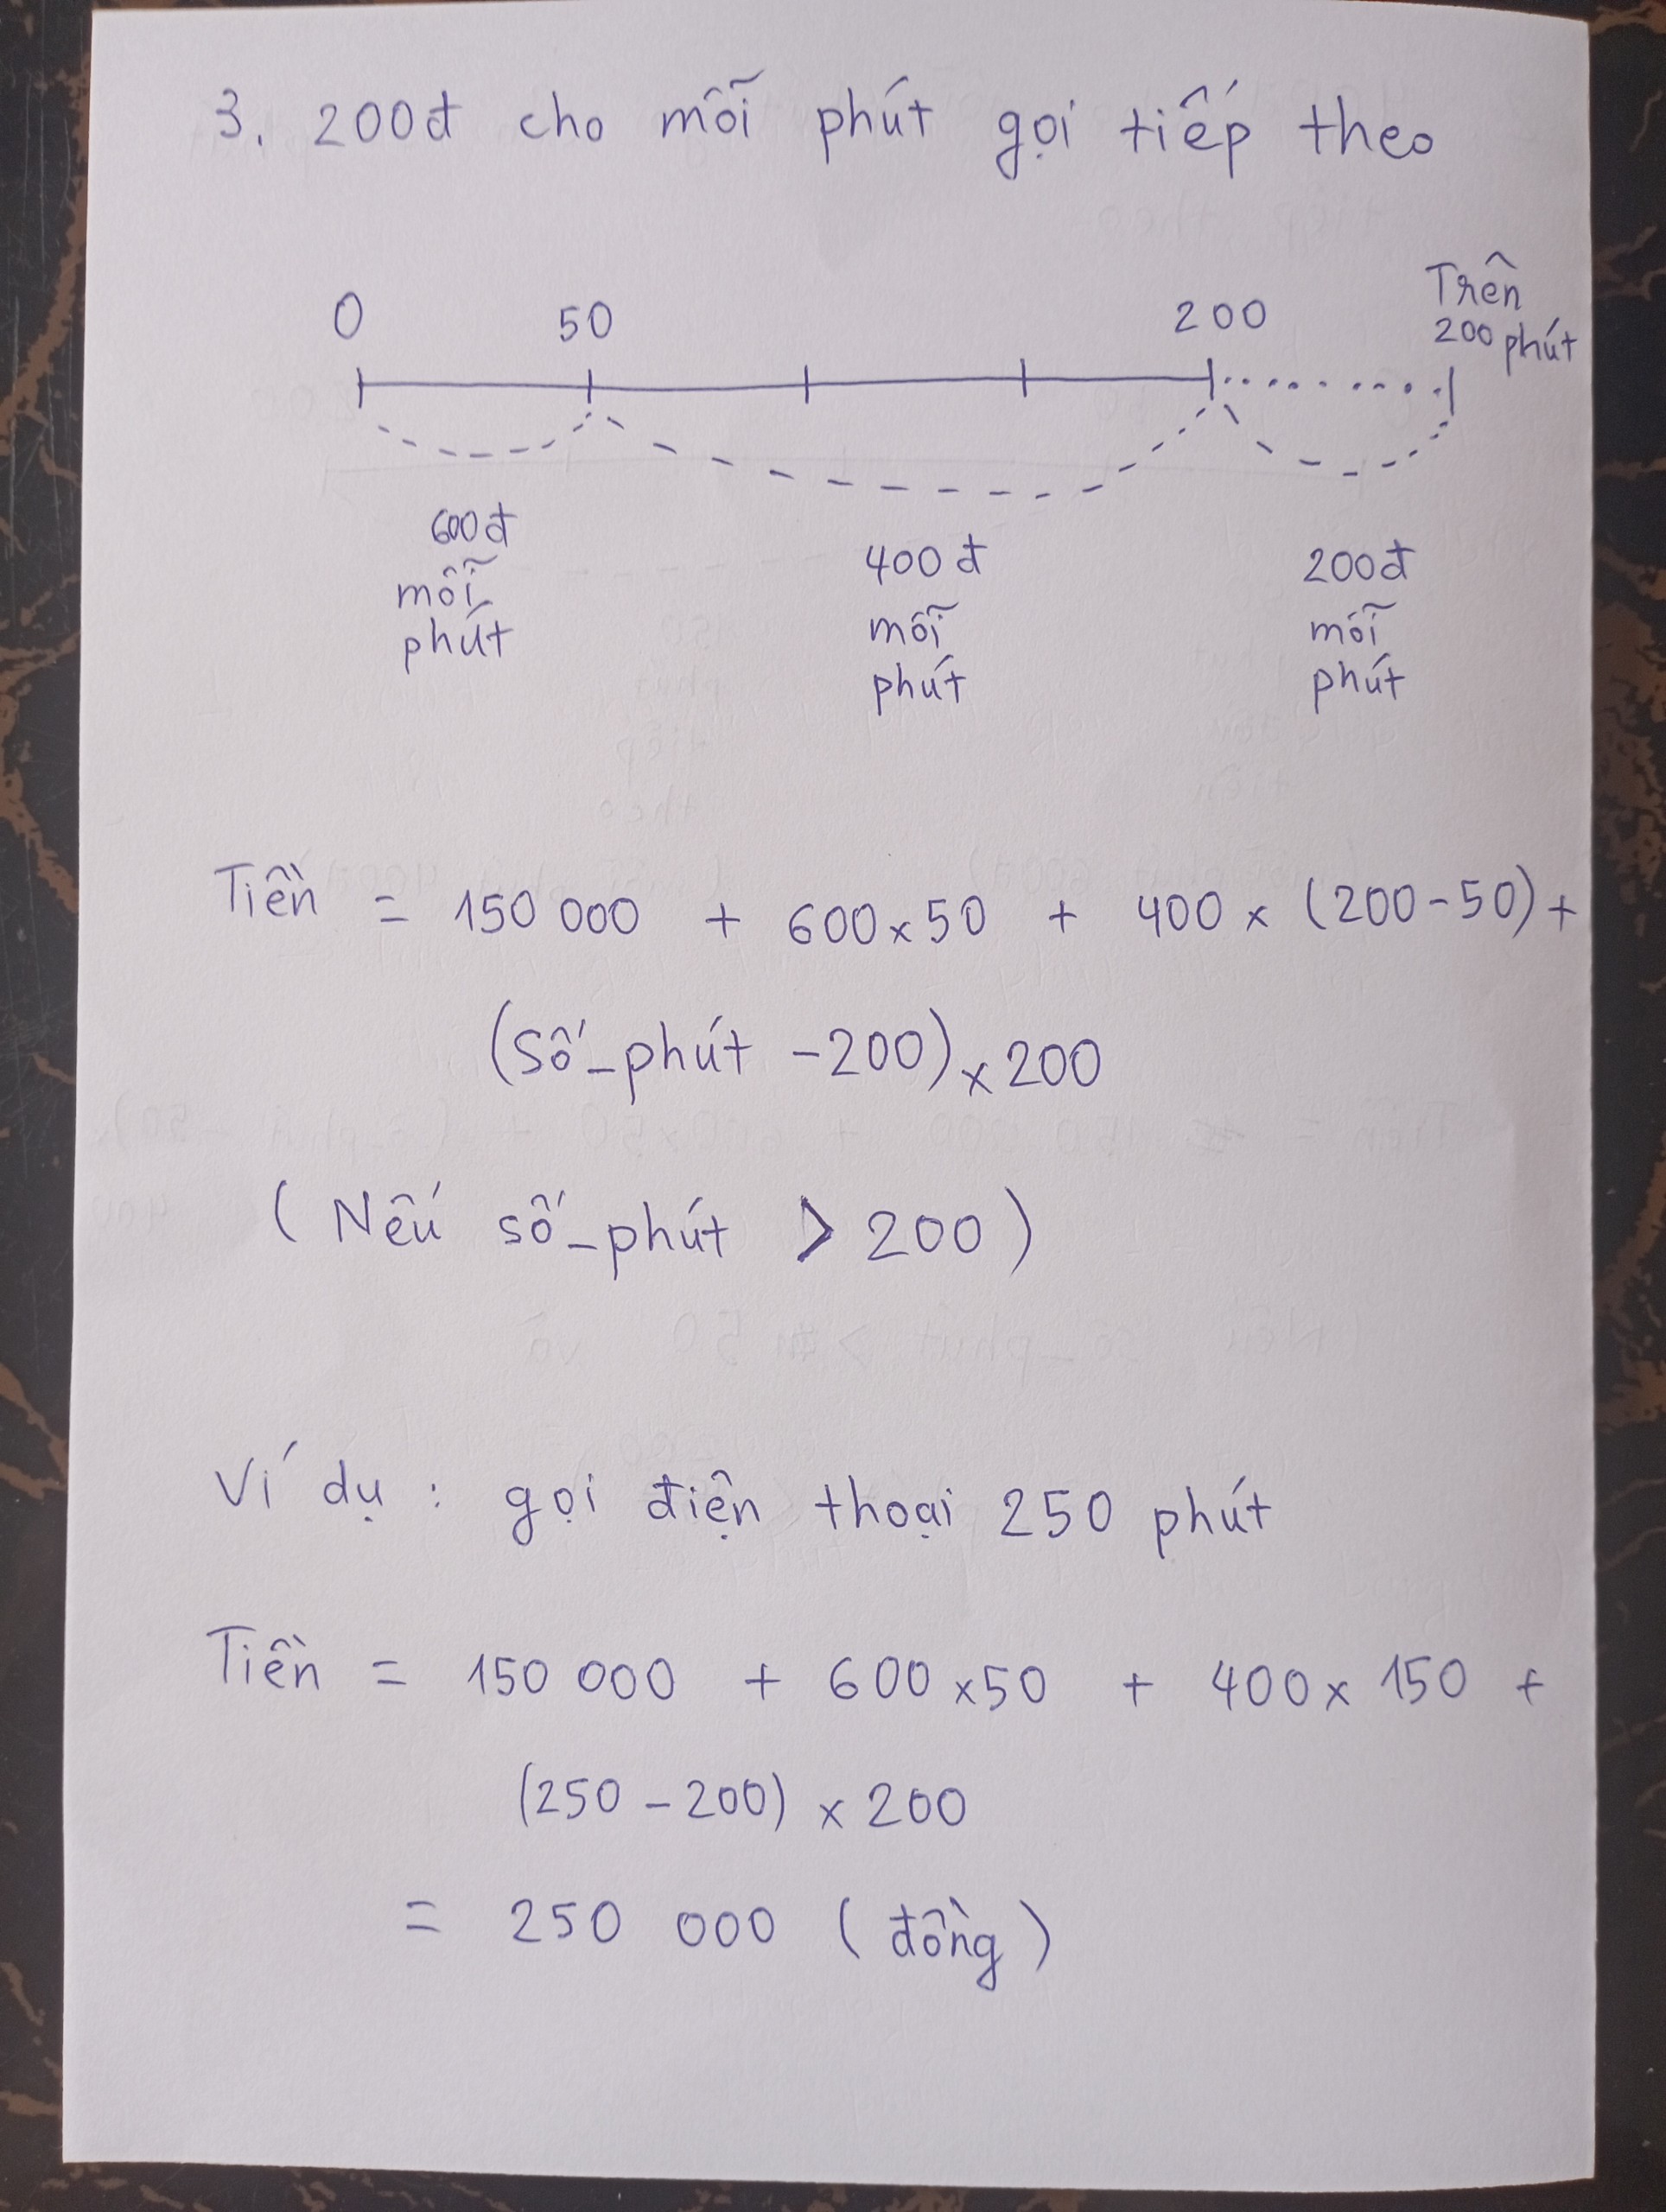 3. 200đ cho mỗi phút gọi tiếp theo
0 50 200 Trên
200 phút
600đ
mỗi
phút
400đ
mỗi
phút
200đ
mỗi
phút
Tiền = 150 000 + 600 x 50 + 400 x (200 - 50) +
(số_phút - 200) x 200
(Nếu số_phút > 200)
Ví dụ : gọi điện thoại 250 phút
Tiền = 150 000 + 600 x 50 + 400 x 150 +
(250 - 200) x 200
= 250 000 (đồng)